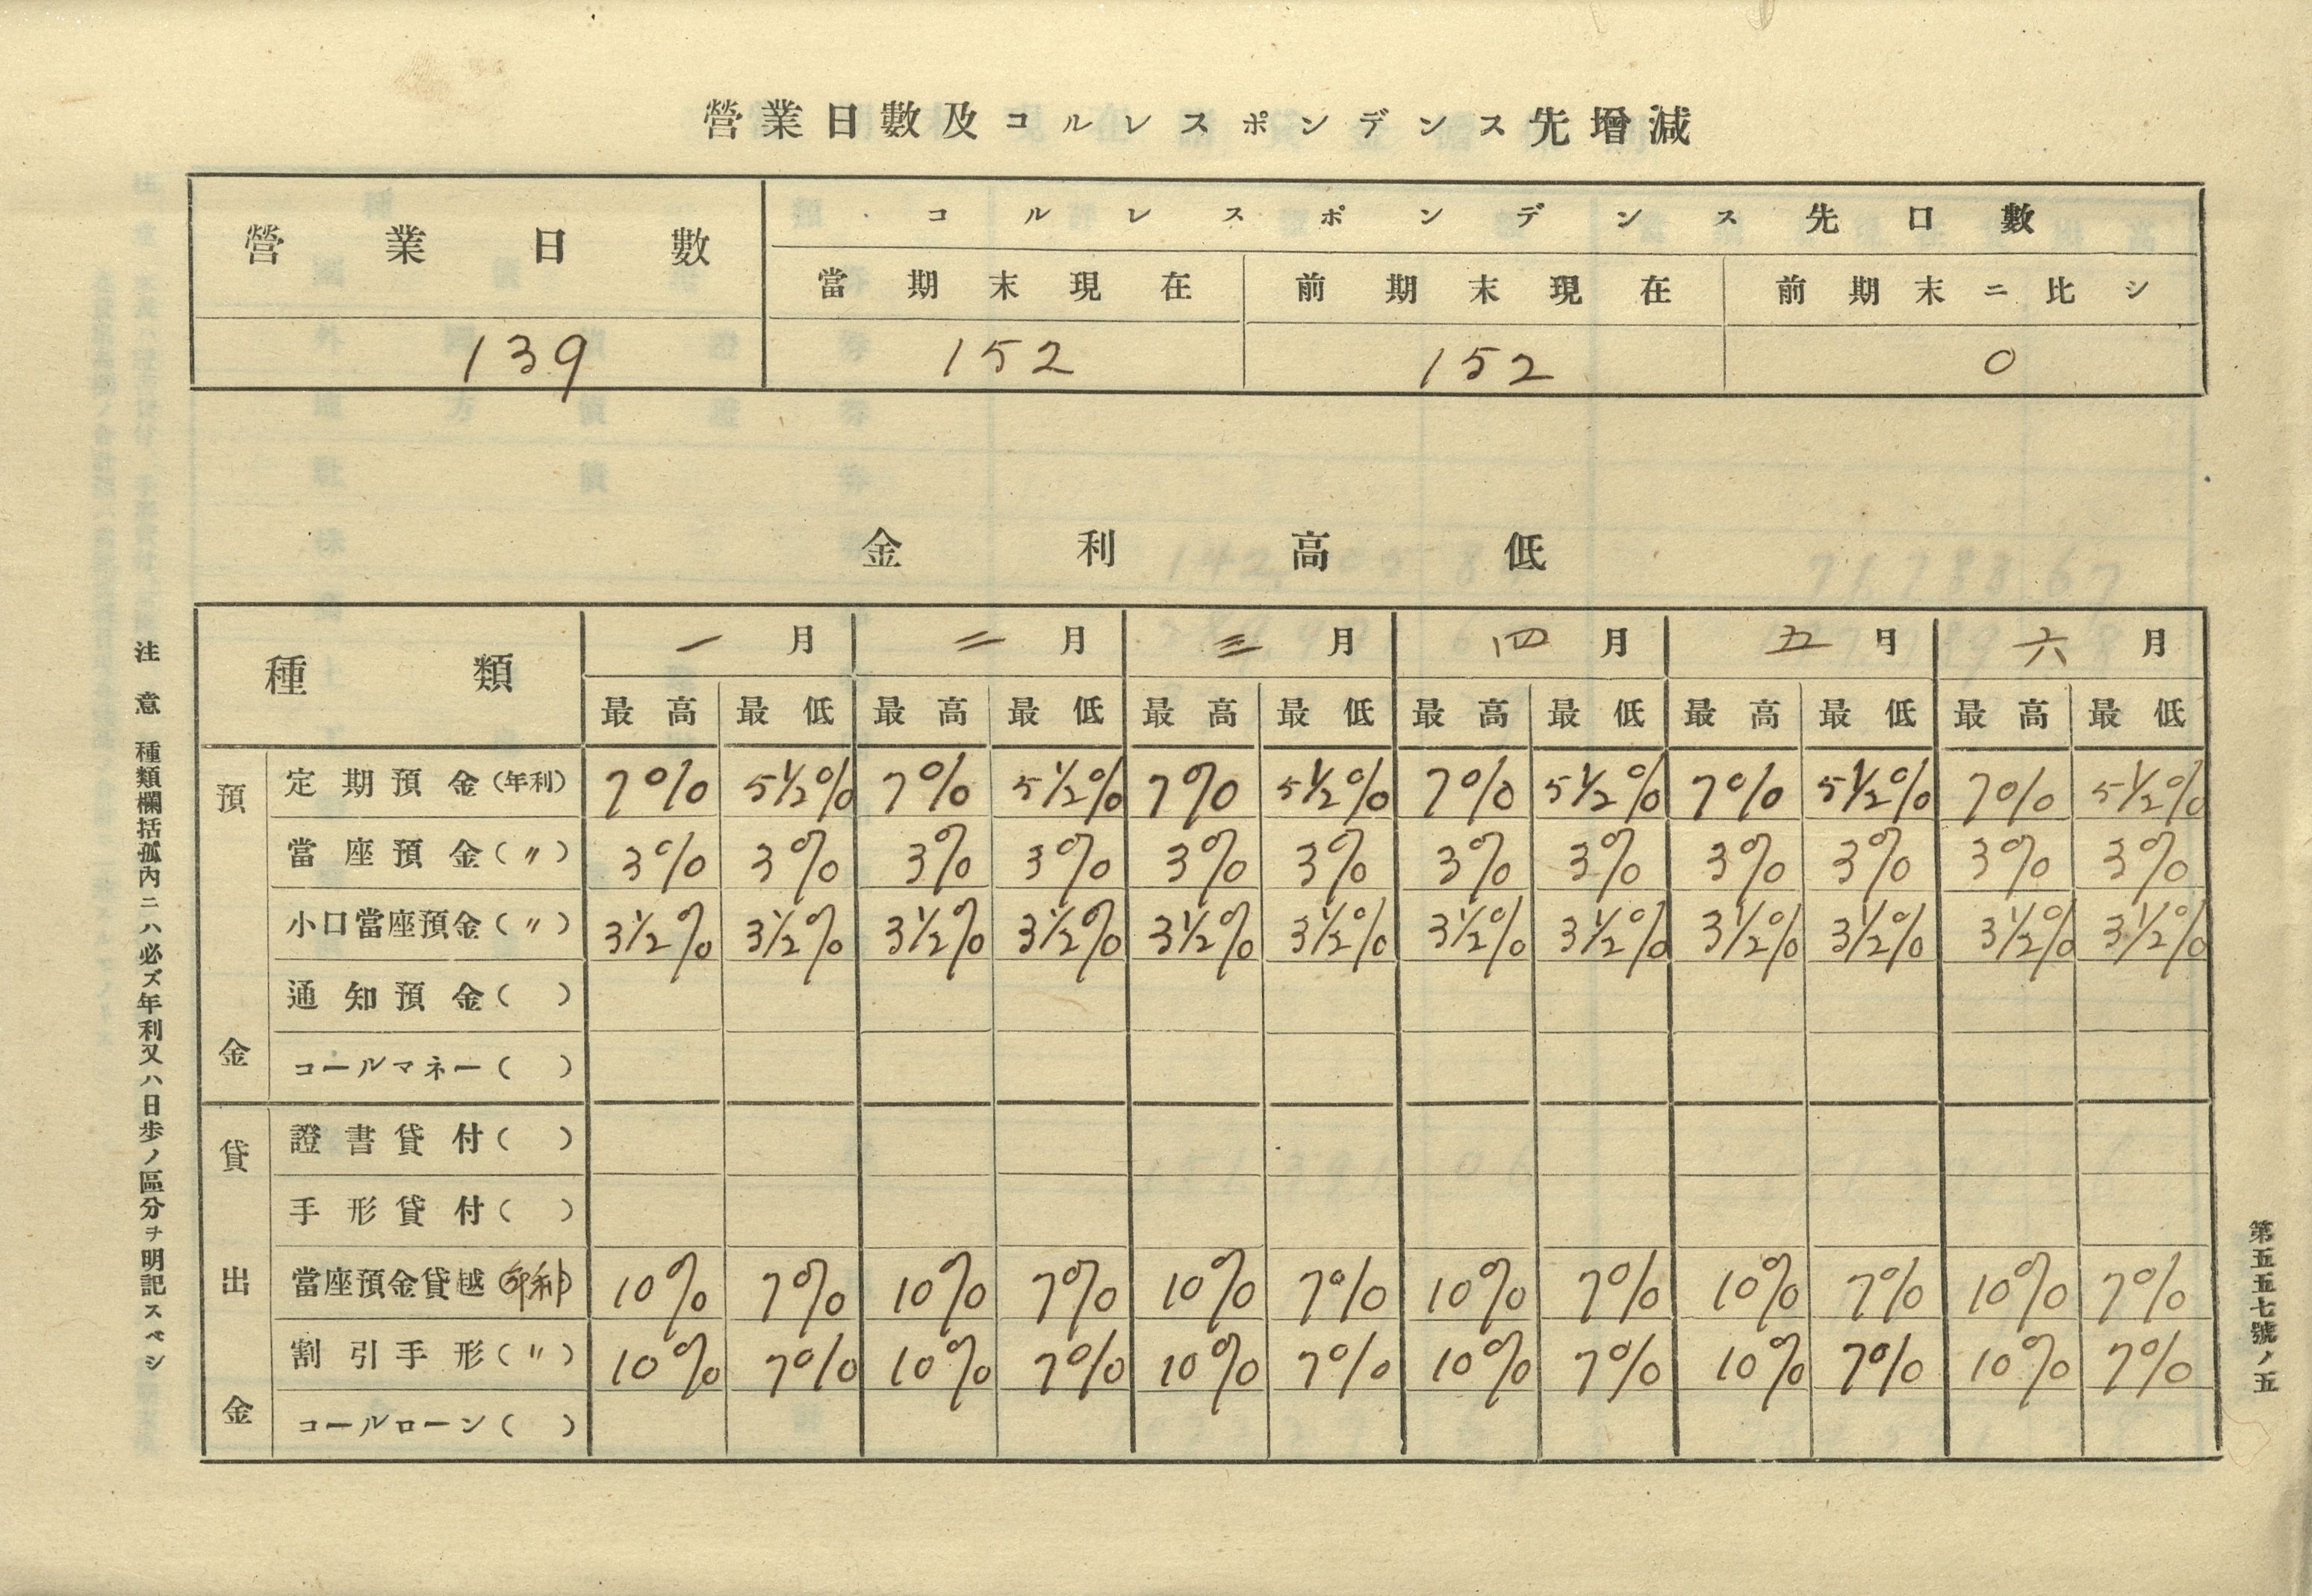 營業日數及コルレスポンデンス先增減
營業日數 コルレスポンデンス先口數
當期末現在 前期末現在 前期末ニ比シ
139 152 152 0
金利高低
種類 一月 二月 三月 四月 五月 六月
最高 最低 最高 最低 最高 最低 最高 最低 最高 最低 最高 最低
預金
定期預金(年利) 7% 5½% 7% 5½% 7% 5½% 7% 5½% 7% 5½% 7% 5½%
當座預金(〃) 3% 3% 3% 3% 3% 3% 3% 3% 3% 3% 3% 3%
小口當座預金(〃) 3½% 3½% 3½% 3½% 3½% 3½% 3½% 3½% 3½% 3½% 3½% 3½%
通知預金( )
コールマネー( )
貸出金
證書貸付( )
手形貸付( )
當座預金貸越 10% 7% 10% 7% 10% 7% 10% 7% 10% 7% 10% 7%
割引手形(〃) 10% 7% 10% 7% 10% 7% 10% 7% 10% 7% 10% 7%
コールローン( )
注意 種類欄括孤內ニハ必ズ年利又ハ日歩ノ區分ヲ明記スベシ
第五五七號ノ五